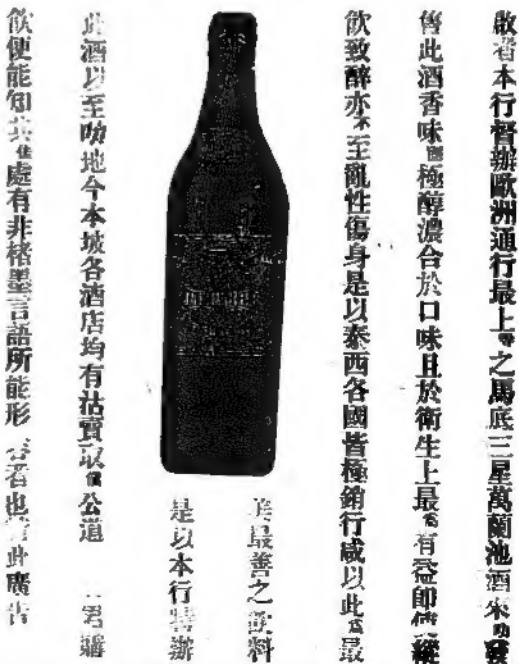 敬者本行督辦歐洲通行最上等之馬底三星萬蘭池酒來叻發
售此酒香味極醇濃合於口味且於衛生上最為有益即使縱
飲致醉亦不至亂性傷身是以泰西各國皆極銷行咸以此為最
最善之飲料
是以本行督辦
此酒以至叻地今本坡各酒店均有沽賣取價公道 君購
飲便能知其佳處有非楮墨言語所能形容者也 此廣告